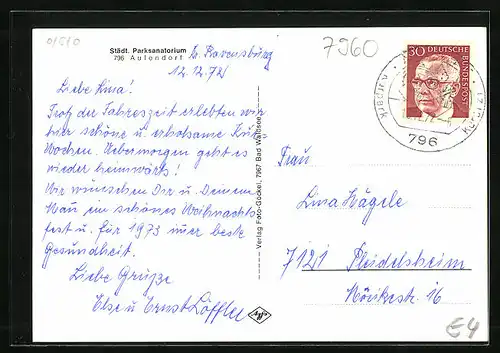 01510
Städt. Parksanatorium
796 Aulendorf
b. Ravensburg
12.12.72
7960
Liebe Lina!
Trotz der Jahreszeit erlebten wir
hier schöne u. erholsame Kur-
Wochen. Uebermorgen geht es
wieder heimwärts!
Wir wünschen Dir u. Deinem
Mann ein schönes Weihnachts
fest u. für 1973 nur beste
Gesundheit.
Liebe Grüße
Else u. Ernst Löffler
Verlag Foto-Gückel, 7967 Bad Waldsee
30 DEUTSCHE
BUNDESPOST
796
Frau
Lina Hägele
7121 Pleidelsheim
Mörikestr. 16
E4